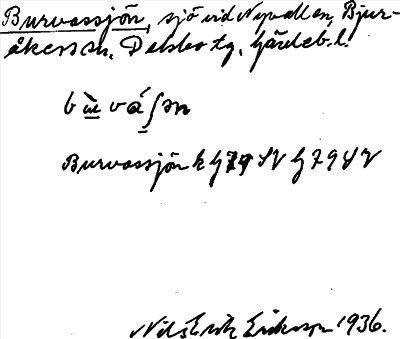 Burvassjön, sjö vid Nyvallen, Bjur-
åkers sn, Delsbo tg, Gävleb. l.
bu̠̇vá̠ʃən
Burvassjön k G 79 SV G 79 SV
Nils Erik Eriksson 1936.